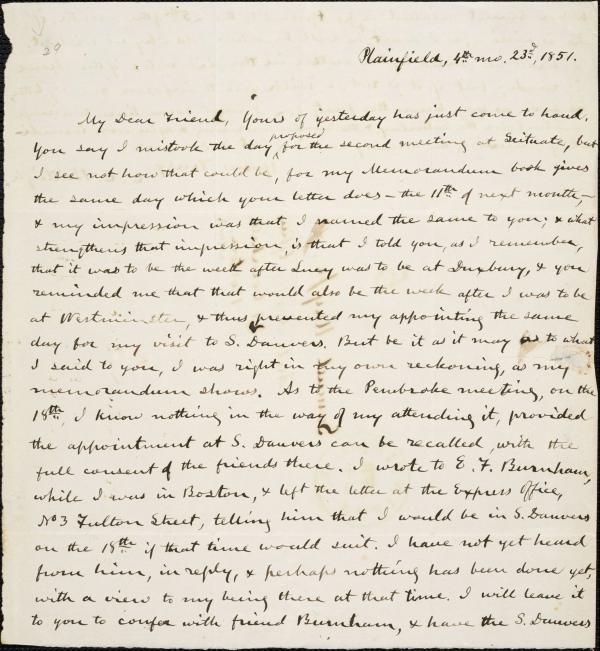 29
Plainfield, 4th mo. 23d, 1851.
My Dear Friend, Yours of yesterday has just come to hand.
proposed
You say I mistook the day, for the second meeting at Scituate, but
I see not how that could be, for my Memorandum book gives
the same day which your letter does – the 11th of next month, –
& my impression was that I named the same to you; & what
strengthens that impression, is that I told you, as I remember,
that it was to be the week after Lucy was to be at Duxbury, & you
reminded me that that would also be the week after I was to be
at Westminster, & thus prevented my appointing the same
day for my visit to S. Danvers. But be it as it may as to what
I said to you, I was right in my own reckoning, as my
memorandum shows. As to the Pembroke meeting, on the
18th, I know nothing in the way of my attending it, provided
the appointment at S. Danvers can be recalled, with the
full consent of the friends there. I wrote to E. F. Burnham,
while I was in Boston, & left the letter at the Express Office,
No 3 Fulton Street, telling him that I would be in S. Danvers
on the 18th if that time would suit. I have not yet heard
from him, in reply, & perhaps nothing has been done yet,
with a view to my being there at that time. I will leave it
to you to confer with friend Burnham, & have the S. Danvers